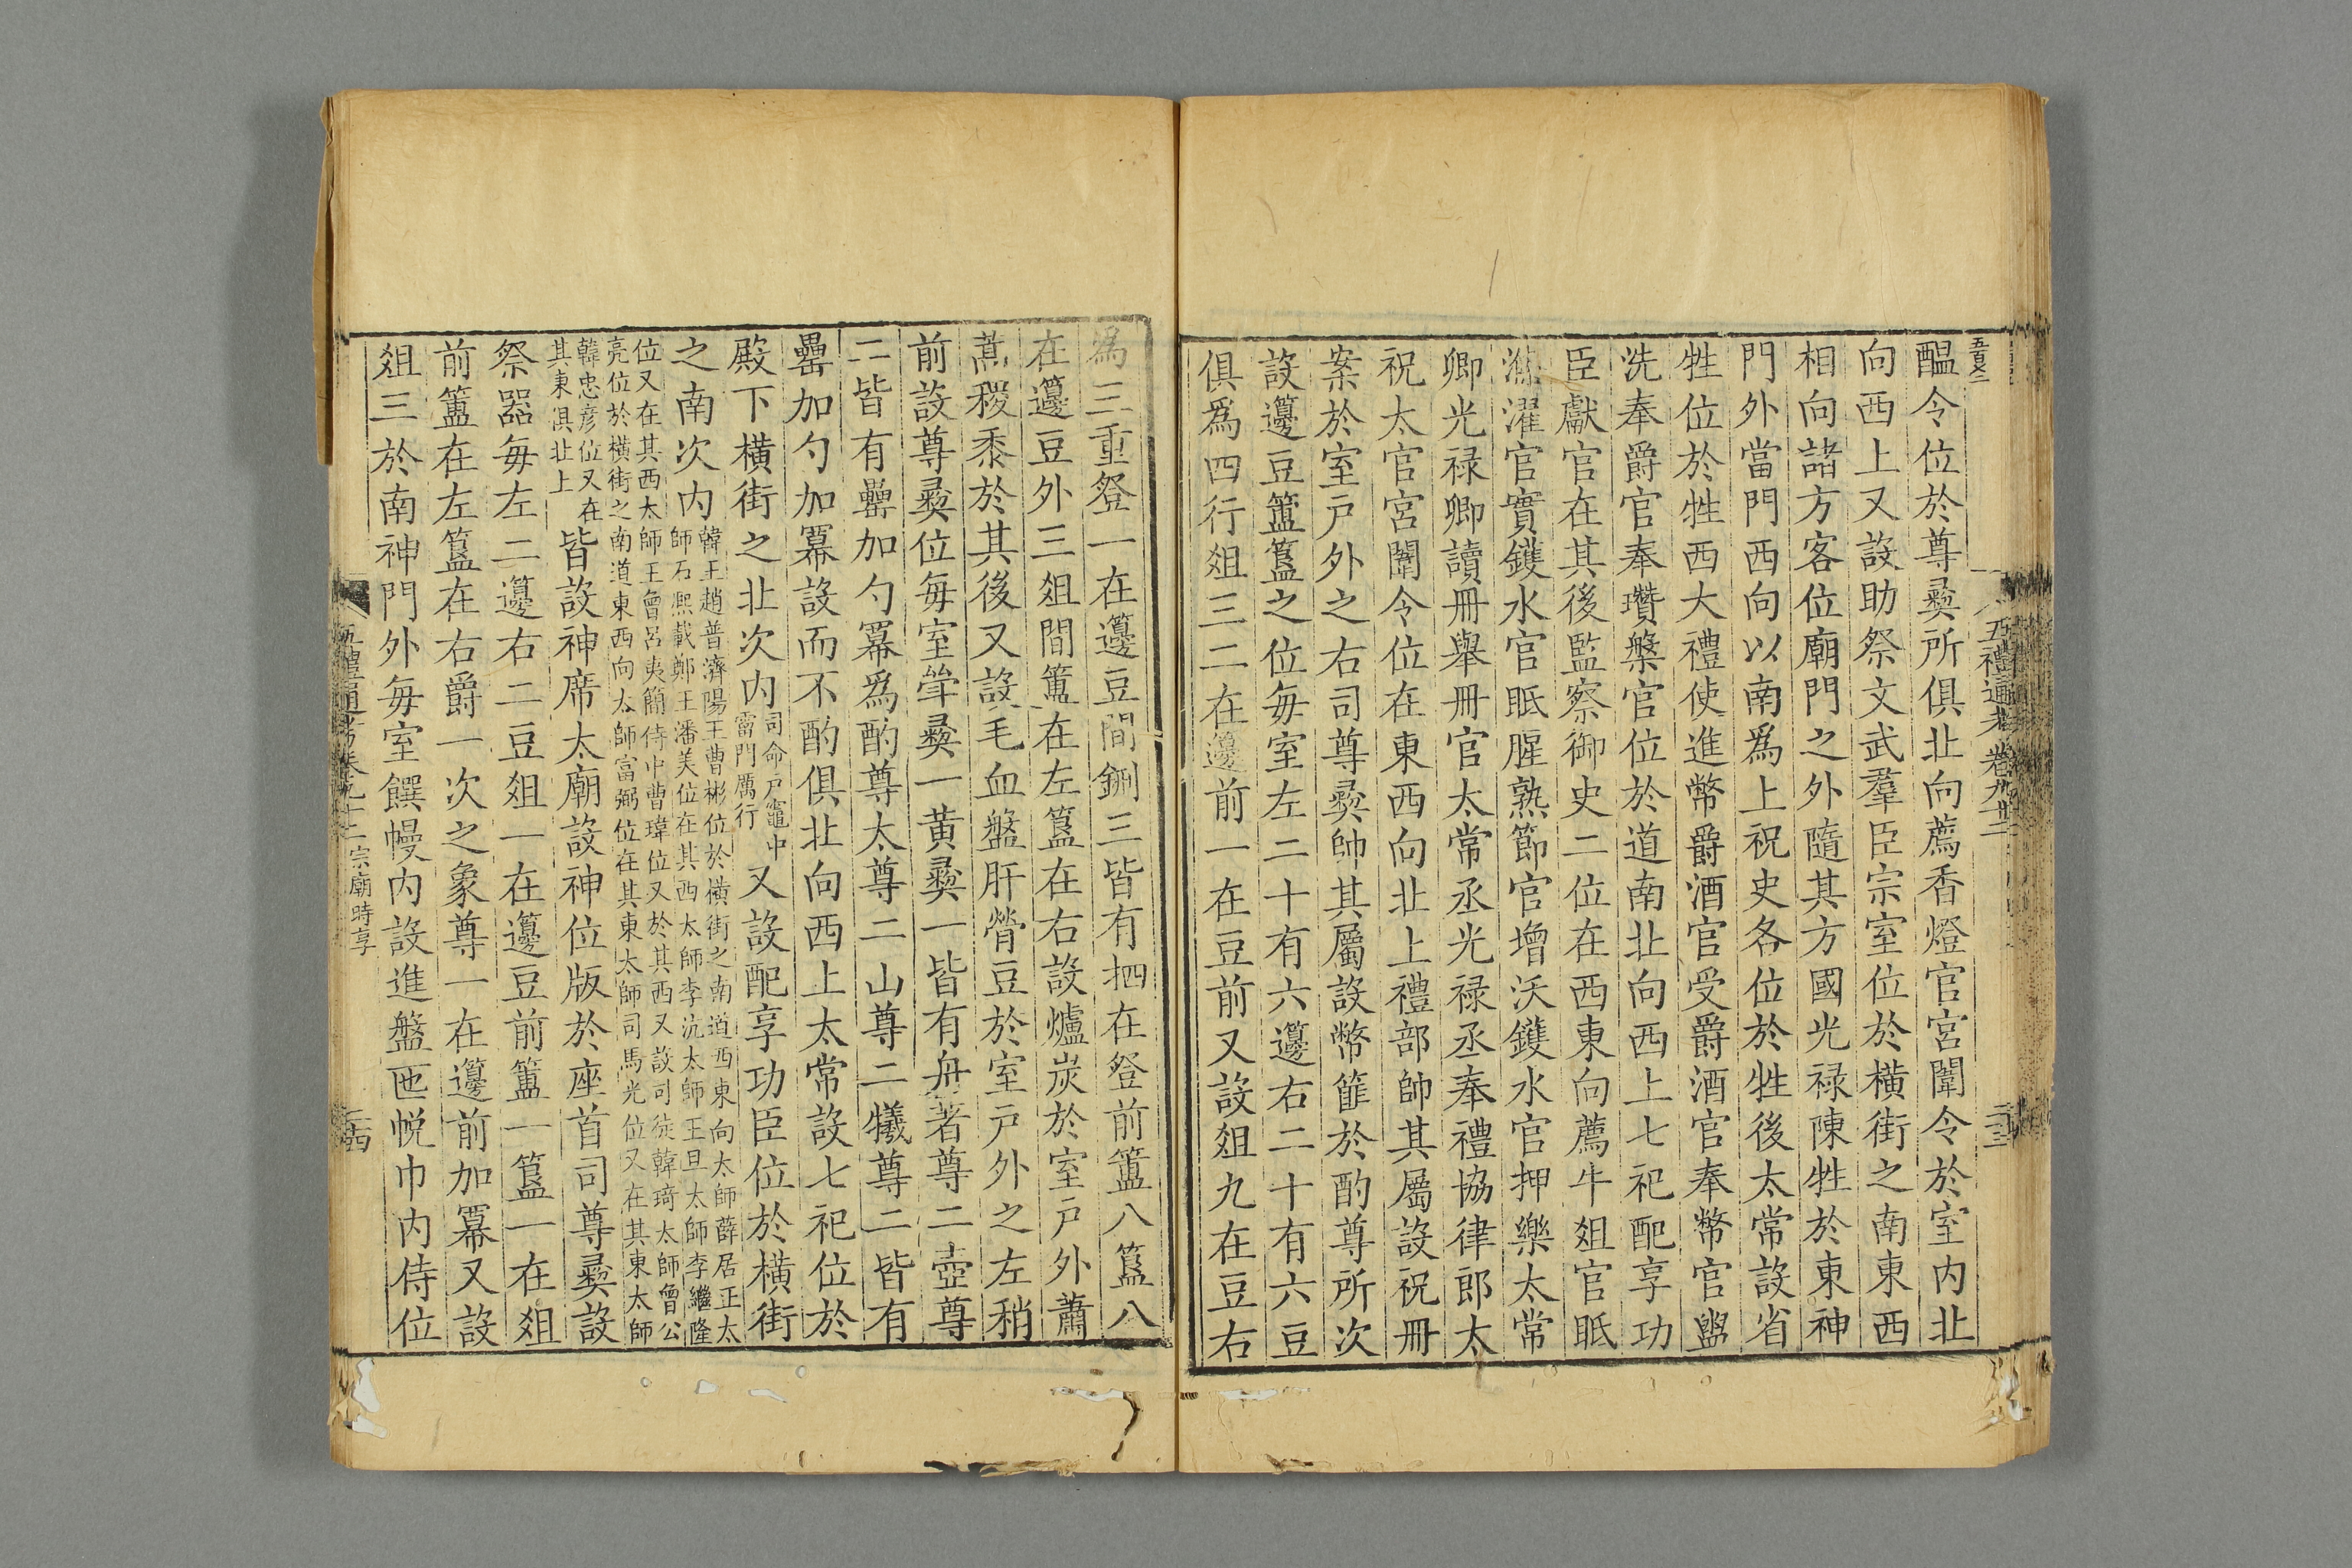 醖令位於尊彞所俱北向薦香燈官宮闈令於室内北
向西上又設助祭文武羣臣宗室位於橫街之南東西
相向諸方客位廟門之外隨其方國光禄陳牲於東神
門外當門西向以南爲上祝史各位於牲後太常設省
牲位於牲西大禮使進幣爵酒官受爵酒官奉幣官盥
洗奉爵官奉瓚槃官位於道南北向西上七祀配享功
臣獻官在其後監察御史二位在西東向薦牛俎官眡
滌濯官實鑊水官眡腥熟節官增沃鑊水官押樂太常
卿光禄卿讀冊舉冊官太常丞光禄丞奉禮協律郎太
祝太官宮闈令位在東西向北上禮部帥其屬設祝冊
案於室戸外之右司尊彞帥其屬設幣篚於酌尊所次
設籩豆簠簋之位毎室左二十有六籩右二十有六豆
俱爲四行俎三二在籩前一在豆前又設俎九在豆右
爲三重登一在籩豆間鉶三皆有柶在登前簠八簋八
在籩豆外三俎間簠在左簋在右設爐炭於室戸外蕭
蒿稷黍於其後又設毛血盤肝膋豆於室戸外之左稍
前設尊彞位毎室斝彞一黄彞一皆有舟著尊二壺尊
二皆有罍加勺冪爲酌尊太尊二山尊二犧尊二皆有
罍加勺加冪設而不酌俱北向西上太常設七祀位於
殿下橫街之北次内司命戸竈中
霤門厲行又設配享功臣位於橫街
之南次内韓王趙普濟陽王曹彬位於橫街之南道西東向太師薛居正太
師石熙載鄭王潘美位在其西太師李沆太師王旦太師李繼隆
位又在其西太師王曾呂夷簡侍中曹瑋位又於其西又設司徒韓琦太師曾公
亮位於橫街之南道東西向太師富弼位在其東太師司馬光位又在其東太師
韓忠彦位又在
其東俱北上皆設神席太廟設神位版於座首司尊彞設
祭器毎左二籩右二豆俎一在籩豆前簠一簋一在俎
前簠在左簋在右爵一次之象尊一在籩前加冪又設
俎三於南神門外毎室饌幔内設進盤匜帨巾内侍位
五禮通考卷九十二 宗廟時享